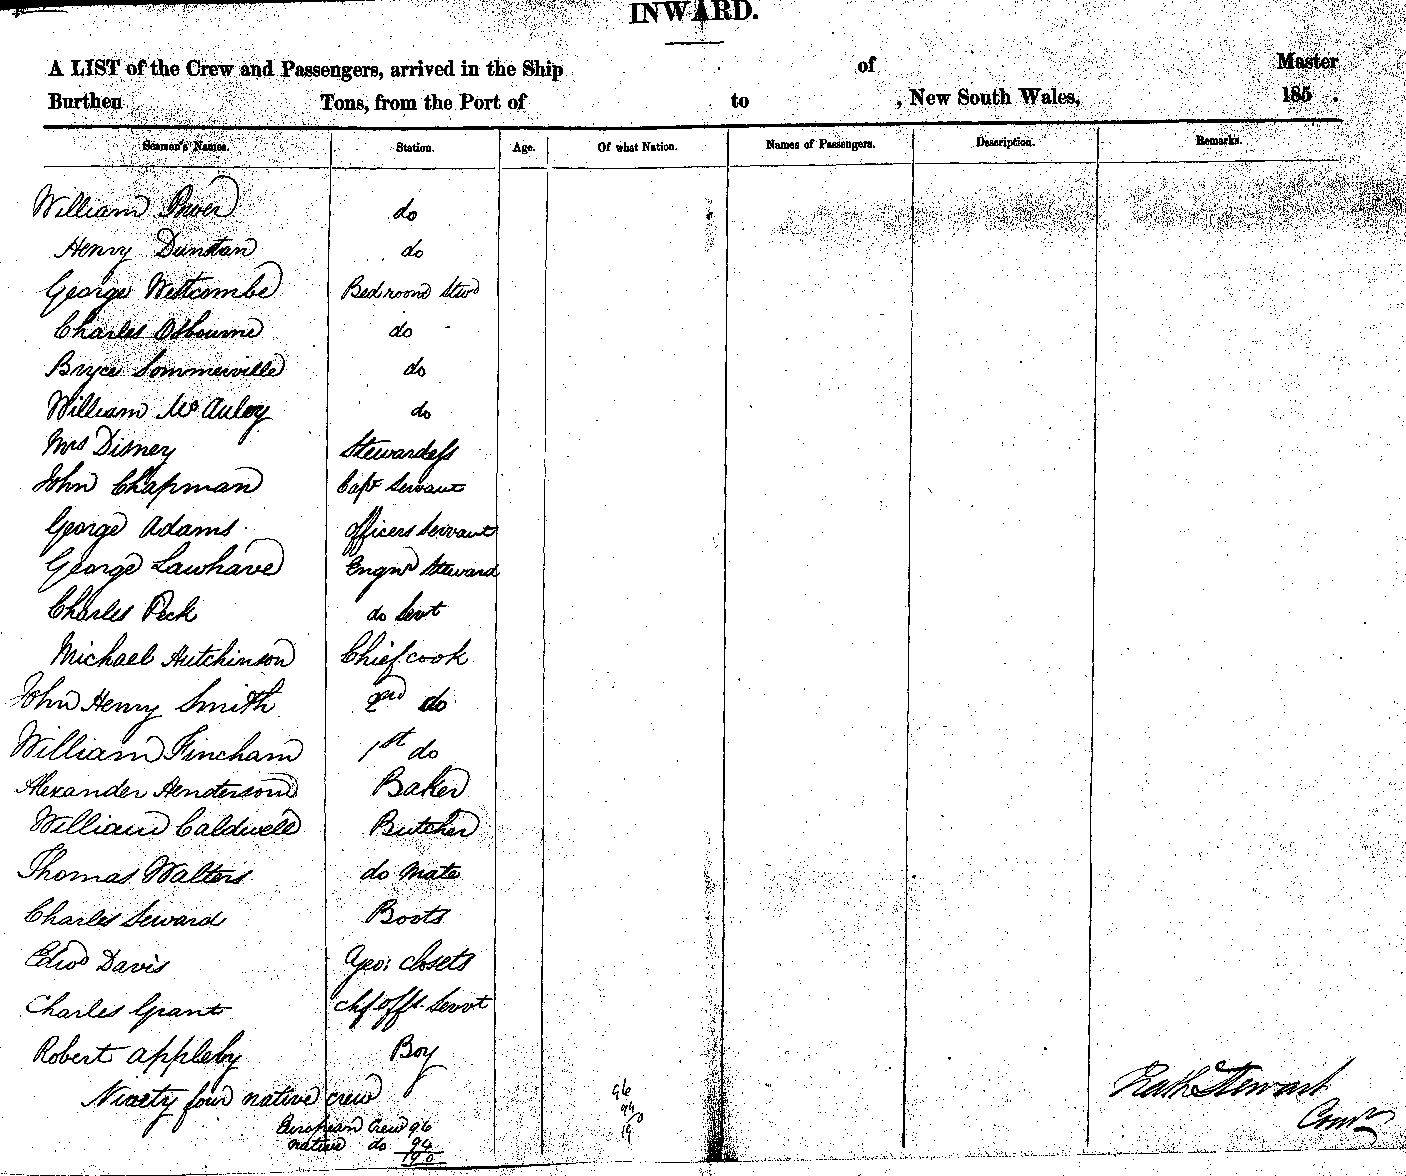 INWARD.
A LIST of the Crew and Passengers, arrived in the Ship of Master
Burthen Tons, from the Port of to , New South Wales, 185 .
Seamen's Names. Station. Age. Of what Nation. Names of Passengers. Description. Remarks.
William Power do
Henry Dunstan do
George Wettcombe Bedroom Stwd
Charles Osbourne do
Bryce Sommerville do
William McAuley do
Mrs Disney Stewardess
John Chapman Capt Servant
George Adams officers Servant
George Lawhave Engnr Steward
Charles Peck do Servt
Michael Hutchinson Chief cook
John Henry Smith 2nd do
William Fincham 1st do
Alexander Henderson Baker
William Caldwell Butcher
Thomas Walters do mate
Charles Seward Boots
Edwd Davis closets
Charles Grant chf offs Servt
Robert Appleby Boy
Ninety four native crew
European Crew 96
native do 94
190
96
94
190
Stewart
Comr